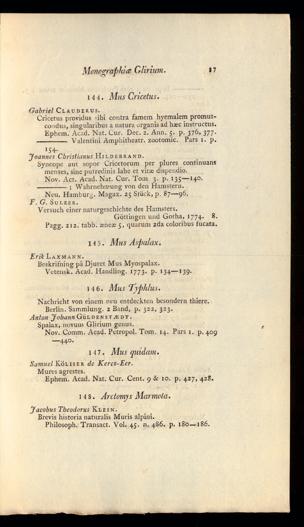 Monographiæ Glirium. 87
144. Mus Cricetus.
Gabriel CLAUDERUS.
Cricetus providus sibi contra famem hyemalem promus-
condus, singularibus a natura organis ad hæc instructus.
Ephem. Acad. Nat. Cur. Dec. 2. Ann. 5. p. 376, 377.
——— Valentini Amphitheatr. zootomic. Pars 1. p.
154.
Joannes Christianus HILDEBRAND.
Syncope aut sopor Cricetorum per plures continuans
menses, sine putredinis labe et vitæ dispendio.
Nov. Act. Acad. Nat. Cur. Tom 5. p. 135—140.
———; Wahrnehmung von den Hamstern.
Neu. Hamburg. Magaz. 25 Stück, p. 87—96.
F. G. SULZER.
Versuch einer naturgeschichte des Hamsters.
Göttingen und Gotha, 1774. 8.
Pagg. 212. tabb. æneæ 5, quarum 2da coloribus fucata.
145. Mus Aspalax.
Erik LAXMANN.
Beskrifning på Djuret Mus Myospalax.
Vetensk. Acad. Handling. 1773. p. 134—139.
146. Mus Typhlus.
Nachricht von einem neu entdeckten besondern thiere.
Berlin. Sammlung. 2 Band, p. 322, 323.
Anton Johann GÜLDENSTÆDT.
Spalax, novum Glirium genus.
Nov. Comm. Acad. Petropol. Tom. 14. Pars 1. p. 409
—440.
147. Mus quidam.
Samuel KÖLESER de Keres-Eer.
Mures agrestes.
Ephem. Acad. Nat. Cur. Cent. 9 & 10. p. 427, 428.
148. Arctomys Marmota.
Jacobus Theodorus KLEIN.
Brevis historia naturalis Muris alpini.
Philosoph. Transact. Vol. 45. n. 486. p. 180—186.